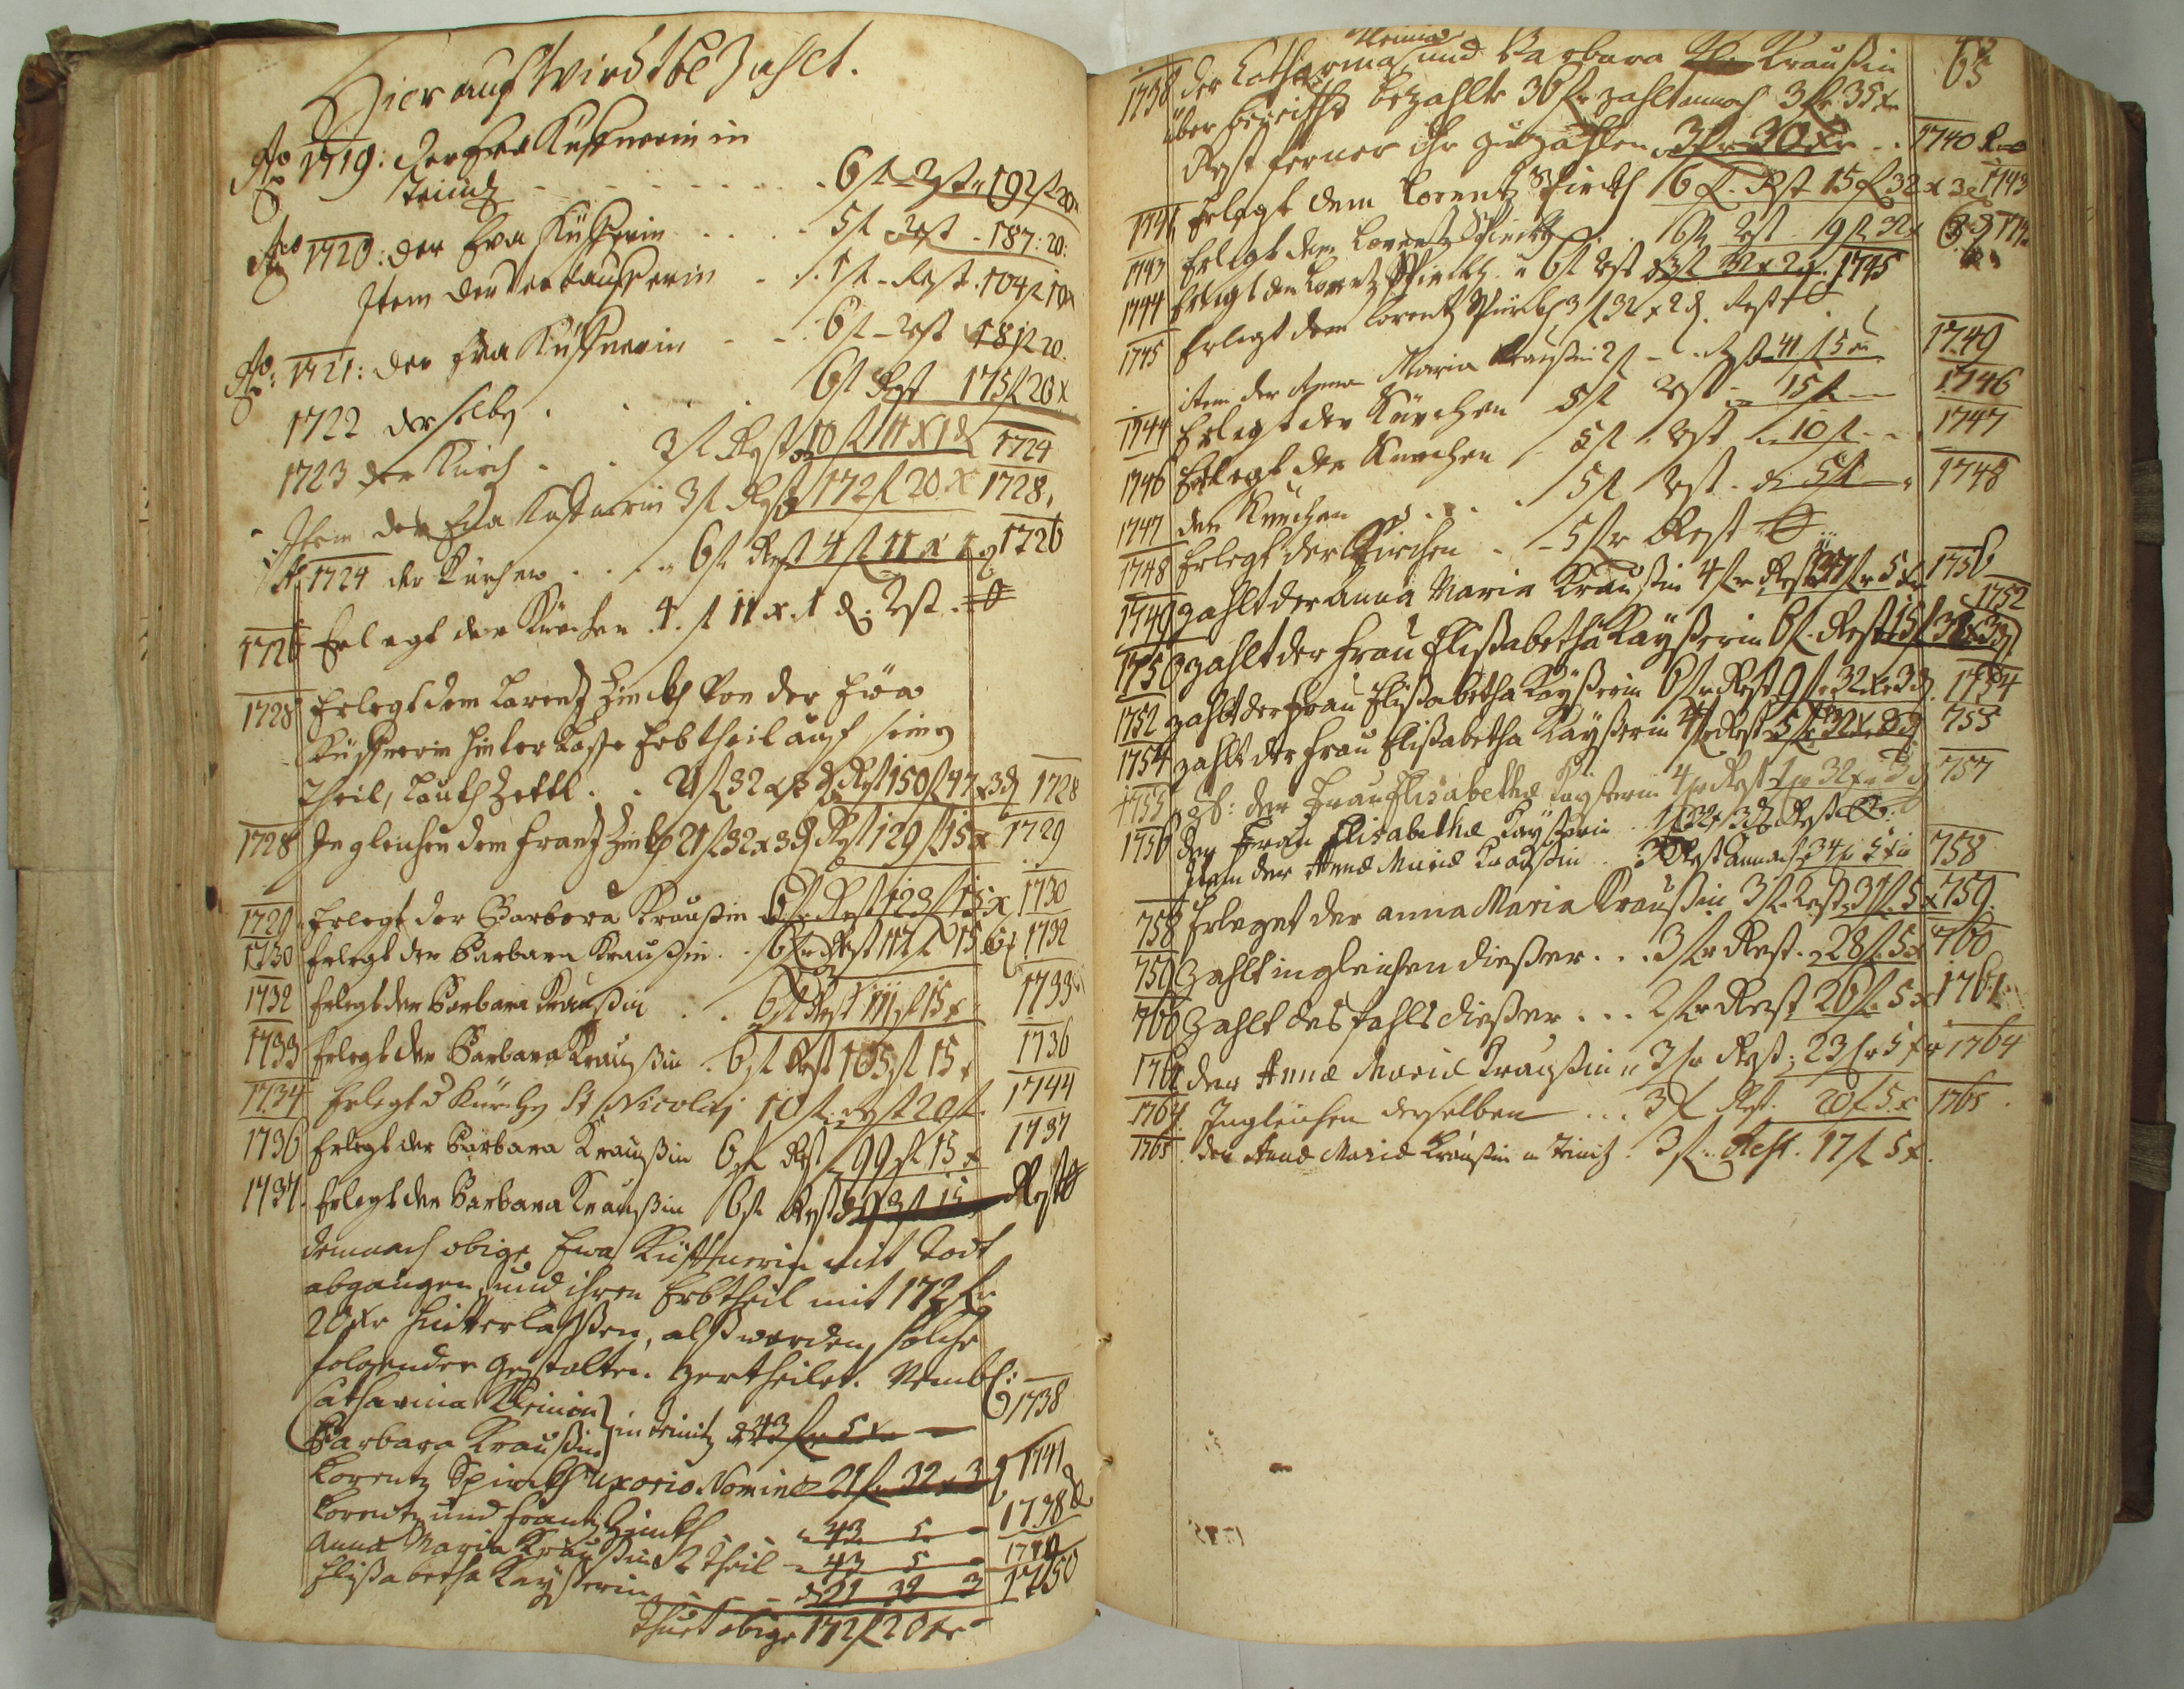 Hierauf Wirdt bezahlt.
Ao 1719: der Eva Küstnerin in
Teinitz - - - 6 fl Rest 192 fl 20
Ao 1720: der Eva Küstnerin . . . 5 fl Rest - 187: 20:
Item der Verkaufferin - . 1 fl - Rest . 104 fl 10
Ao: 1721: der Eva Küstnerin - - 6 fl - Rest 181 fl 20.
1722 derselben . . . 6 fl Rest 175 fl 20 x
1723 der Kirch . . 3 fl Rest 10 fl 11 x 1 d 1724
Item der Eva Küstnerin 3 fl Rest 172 fl 20 x 1728.
Ao 1724 der Kürchen . . . 6 fl Rest 4 fl 11 x 1 d 1726
1726 Erlegt der Kürchen . 4 . fl 11 x . 1 d. Rest . 0
1728 Erlegt dem Lorentz Zinckh von der Ewa
Küstnerin hinterlasse Erbtheil auf seinen
Theil, lauth Zettl . . 21 fl 32 x 3 d Rest 150 fl 47 x 3 d 1728
1728 Ingleichen dem Frantz Zinckh 21 fl 32 x 3 d Rest 129 fl 15 x 1729
1729 Erlegt der Barbara Kraußin 6 fl Rest 123 fl 15 x 1730
1730 Erlegt der Barbara Kraußin . . 6 fl Rest 117 fl 15 x 1732
1732 Erlegt der Barbara Kraußin . . 6 fl Rest 111 fl 15 x 1733
1733 Erlegt der Barbara Kraußin . 6 fl Rest 105 fl 15 x 1736
1734 Erlegt d Kürchen St Nicolaj 10 fl . Rest 20 fl . 1744
1736 Erlegt der Barbara Kraußin 6 fl Rest 99 fl 15 x 1737
1737. Erlegt der Barbara Kraußin 6 fl Rest 93 fl 15 Rest 0
demnach obige Ewa Küstnerin mit Todt
abgangen, und ihren Erbtheil mit 172 fl
20 xr hinterlaßßen, alß werden solche
folgender gestalten zertheilet. Nembl:
Catharina
Barbara Kraußin } in Teinitz 43 fl 5 x - 1738
Lorentz Spirckh uxorio Nomine 21 fl 32 x 3 d 1741
Lorentz und Frantz Zinckh - 43 5 - 1738
Anna Maria Kraußin 2 Theil - 43 5 - 1740
Elisabetha Kayßerin - - 21 32 3 1750
Thuet obige 172 fl 20 xr
65
1738 der Catharina und Barbara Kraußin
über bereiths bezahlte 36 fl zahlt annoch 3 fl 35 x
Rest ferner ihr zu zahlen 3 fl 30 xr . . 1740
1741 Erlegt dem Lorentz Spirckh 6 fl . Rest 15 fl 32 x 3 d 1743
1743 Erlegt dem Lorentz Spirckh . . 6 fl Rest - 9 fl 32 x 3 d 1744
1744 Erlegt dem Lorentz Spirckh . 6 fl Rest 3 fl 32 x 2 d. 1745
1745 Erlegt dem Lorentz Spirckh 3 fl 32 x 2 d. Rest 0
item der Anna Maria Kraußin 2 fl - . Rest 41 fl 5 x 1749
1744 Erlegt der Kürchen 5 fl Rest - 15 fl - 1746
1746 Erlegt der Kürchen - 5 fl . Rest - 10 fl - - 1747
1747 der Kürchen . . . 5 fl Rest - 5 fl 1748
1748 Erlegt der Kirchen . - 5 fl Rest 0
1749 zahlt der Anna Maria Kraußin 4 fl Rest 37 fl 5 x 1756
1750 zahlt der Frau Elißabetha Kayßerin 6 fl . Rest 15 fl 32 x 3 d 1752
1752 zahlt der Frau Elißabetha Kayßerin 6 fl Rest 9 fl 32 x 3 d . 1754
1754 zahlt der Frau Elißabetha Kayßerin 4 fl Rest 5 fl 32 x 3 d 755
1755 der Frau Elisabetha Kayserin 4 fl Rest 1 fl 32 x 3 d 757
1756 der Frau Elisabetha Kayserin . 1 fl 32 x 3 d Rest 0
Item der Anna Maria Kraußin . . 3 Rest annoch 34 fl 5 x 758
758 Erleget der anna Maria Kraußin 3 fl Rest 31 fl 5 x 759.
759 Zahlt ingleichen dießer . . . 3 fl Rest . 28 fl 5 x 760
760 Zahlt desfahls dießer . . . 2 fl Rest 26 fl 5 x 1761
1761 der Anna Maria Kraußin 3 fl Rest 23 fl 5 x 1764
1764 Ingleichen derselben ... 3 fl Rest . 20 fl 5 x 1765
1765 . der Anna Maria Kraußin in Teinitz . 3 fl . Rest . 17 fl 5 x .